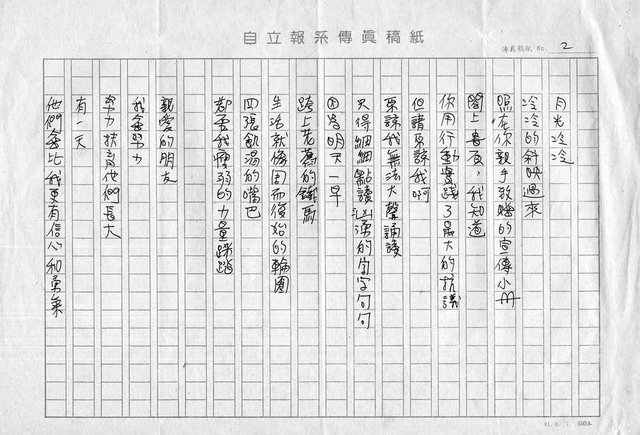 自立報系傳眞稿紙
傳真稿紙 NO. 2
月光冷冷
冷冷的斜映過來
照在你親手致贈的宣傳小冊
闔上書頁,我知道
你用行動實踐了最大的抗議
但請原諒我啊
原諒我無法大聲誦讀
只得細細點讀洶湧的字字句句
因為明天一早
跨上老舊的鐵馬
生活就像周而復始的輪圈
四張飢渴的嘴巴
都要我瘦弱的力量踩踏
親愛的朋友
我會努力
努力扶育他們長大
有一天
他們會比我更有信心和勇氣